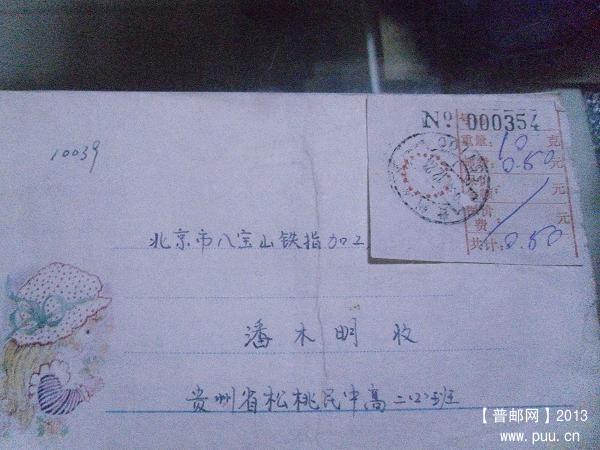 Nº 000354
重量: 10 克
0.50 元
元
费: 元
共计: 0.50
10039
北京市八宝山铁指加工
潘木明 收
贵州省松桃民中高二(2)班
【普邮网】2013
www.puu.cn